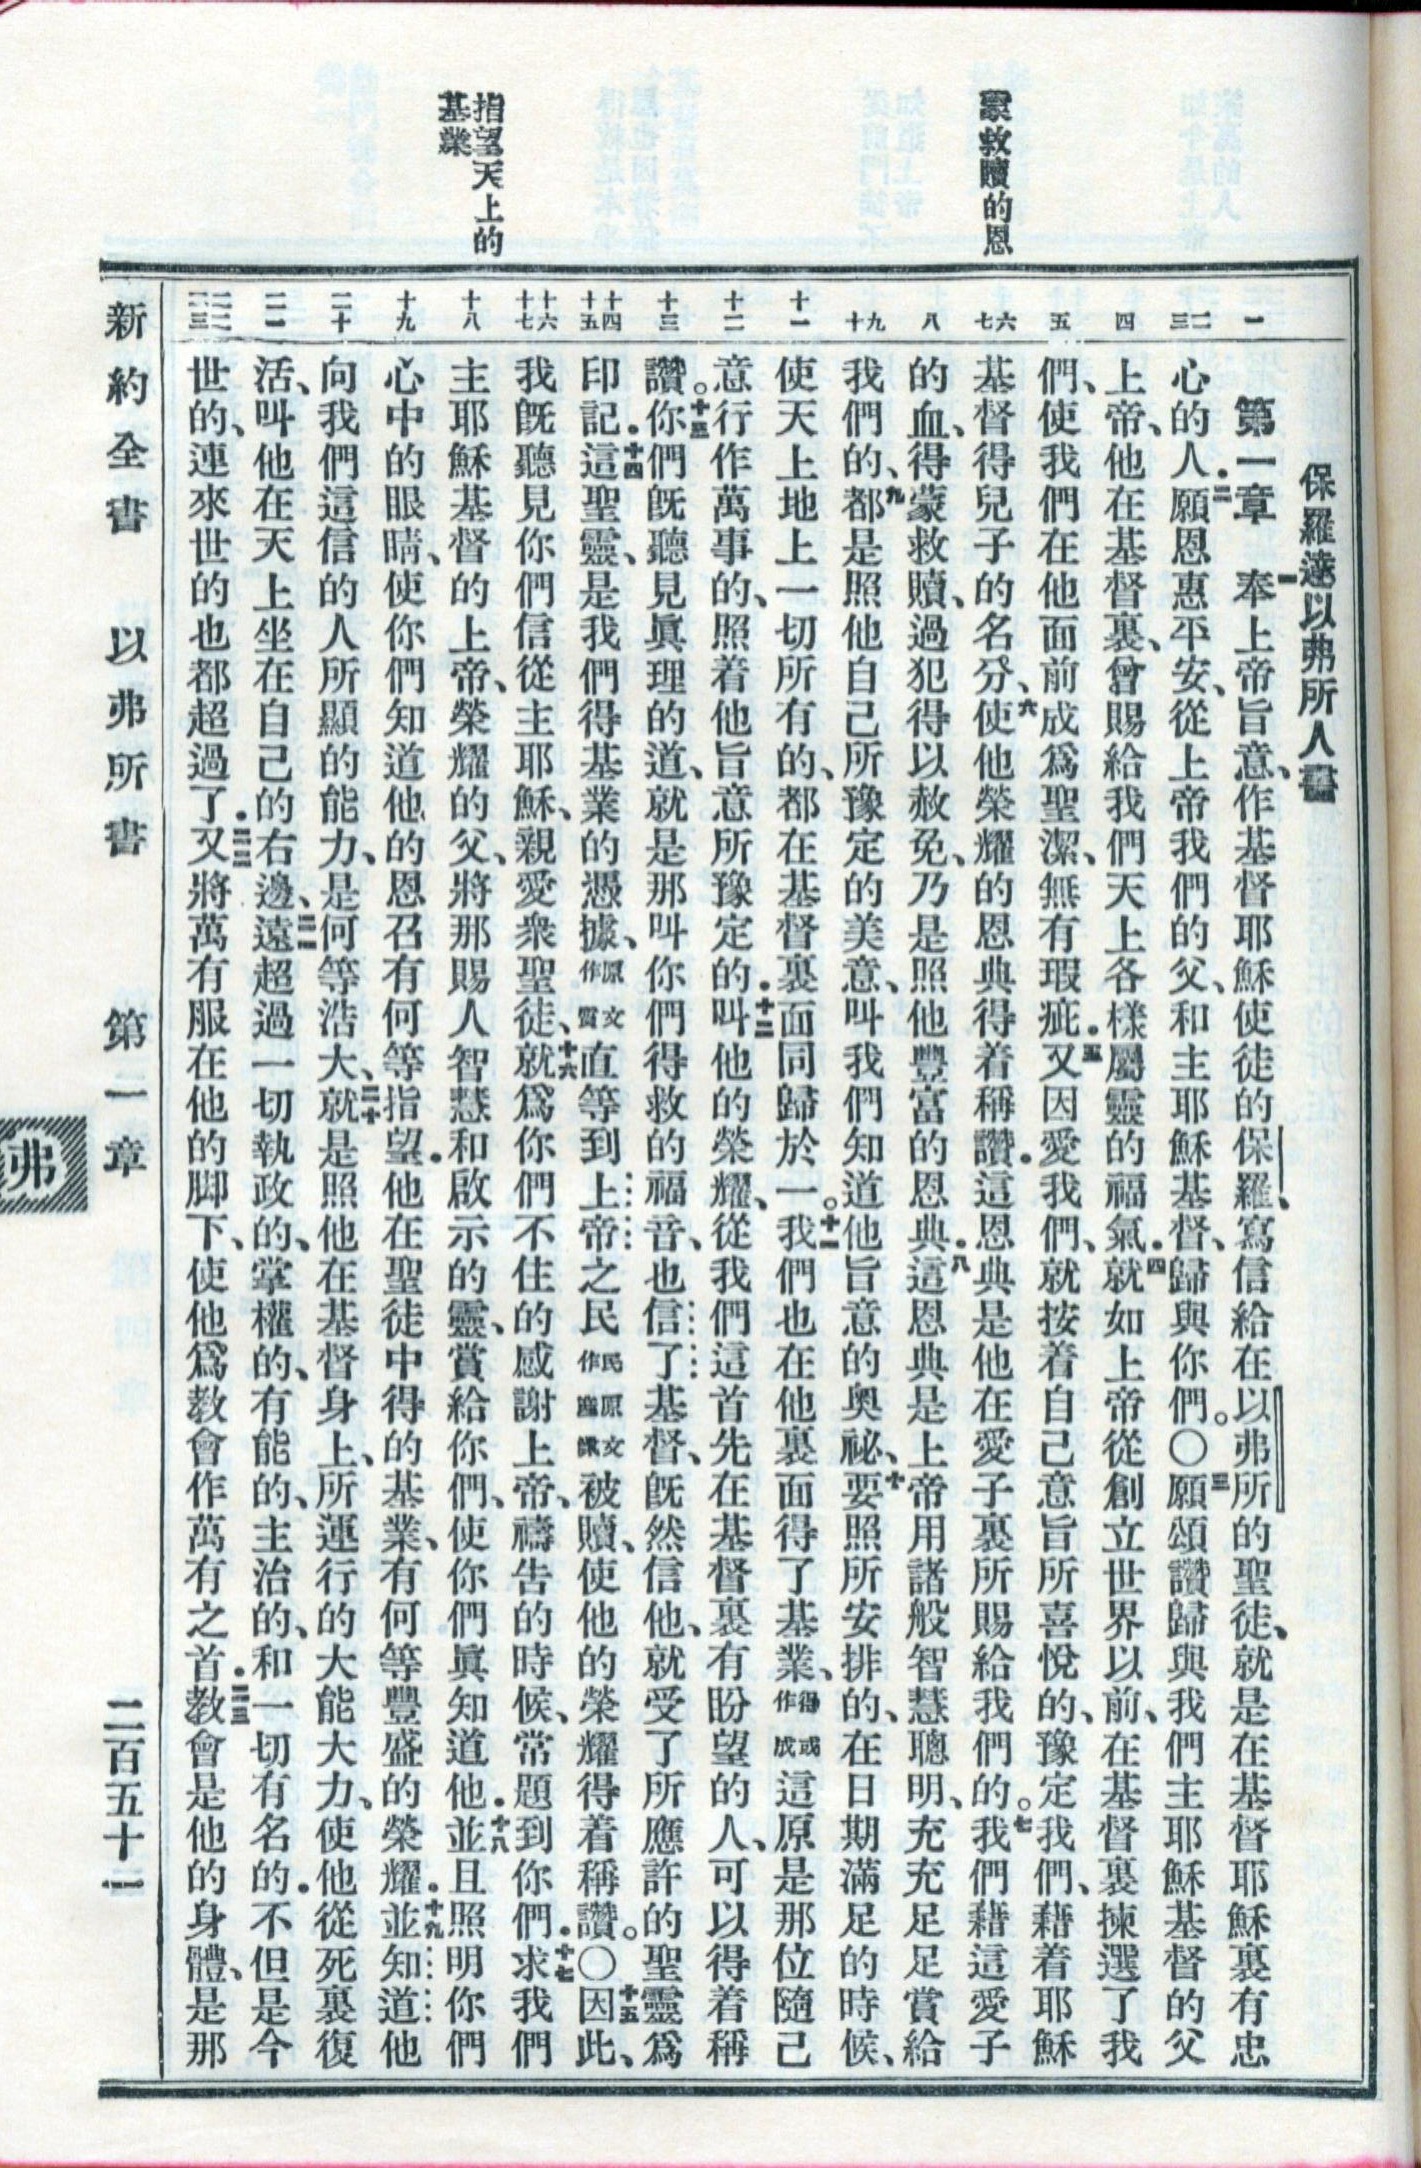 蒙救贖的恩
指望天上的
基業
保羅達以弗所人書
一
第一章 一奉上帝旨意、作基督耶穌使徒的保羅、寫信給在以弗所的聖徒、就是在基督耶穌裏有忠
二 三
心的人.二願恩惠平安、從上帝我們的父、和主耶穌基督、歸與你們。〇三願頌讚歸與我們主耶穌基督的父
四
上帝、他在基督裏、曾賜給我們天上各樣屬靈的福氣.四就如上帝從創立世界以前、在基督裏揀選了我
五
們、使我們在他面前成爲聖潔、無有瑕疵.五又因愛我們、就按着自己意旨所喜悅的、豫定我們、藉着耶穌
六 七
基督得兒子的名分、六使他榮耀的恩典得着稱讚.這恩典是他在愛子裏所賜給我們的。七我們藉這愛子
八
的血、得蒙救贖、過犯得以赦免、乃是照他豐富的恩典.八這恩典是上帝用諸般智慧聰明、充充足足賞給
九 十
我們的、九都是照他自己所豫定的美意、叫我們知道他旨意的奧祕、十要照所安排的、在日期滿足的時候、
十一
使天上地上一切所有的、都在基督裏面同歸於一。十一我們也在他裏面得了基業、得或作成這原是那位隨己
十二
意行作萬事的、照着他旨意所豫定的.十二叫他的榮耀、從我們這首先在基督裏有盼望的人、可以得着稱
十三
讚。十三你們旣聽見眞理的道、就是那叫你們得救的福音、也信了基督、旣然信他、就受了所應許的聖靈爲
十四 十五
印記.十四這聖靈、是我們得基業的憑據、原文作質直等到上帝之民民原文作產業被贖、使他的榮耀得着稱讚。〇十五因此、
十六 十七
我旣聽見你們信從主耶穌、親愛衆聖徒、十六就爲你們不住的感謝上帝、禱告的時候、常題到你們.十七求我們
十八
主耶穌基督的上帝、榮耀的父、將那賜人智慧和啟示的靈、賞給你們、使你們眞知道他.十八並且照明你們
十九
心中的眼睛、使你們知道他的恩召有何等指望.他在聖徒中得的基業、有何等豐盛的榮耀.十九並知道他
二十
向我們這信的人所顯的能力、是何等浩大、二十就是照他在基督身上、所運行的大能大力、使他從死裏復
二一
活、叫他在天上坐在自己的右邊、二一遠超過一切執政的、掌權的、有能的、主治的、和一切有名的.不但是今
二二 二三
世的、連來世的也都超過了.二二又將萬有服在他的脚下、使他爲教會作萬有之首.二三教會是他的身體、是那
新約全書 以弗所書 第一章 二百五十二
弗